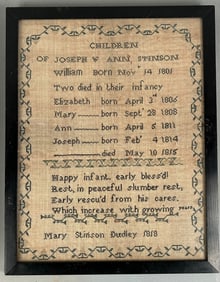 CHILDREN
OF JOSEPH & ANN STINSON
William Born Nov 14 1801
Two died in their infancy
Elizabeth born April 3 1806
Mary born Sept 28 1808
Ann born April 5 1811
Joseph born Feb 4 1814
died May 10 1815
Happy infant, early bless'd!
Rest, in peaceful slumber rest,
Early rescu'd from his cares,
Which increase with growing years
Mary Stinson Dudley 1818